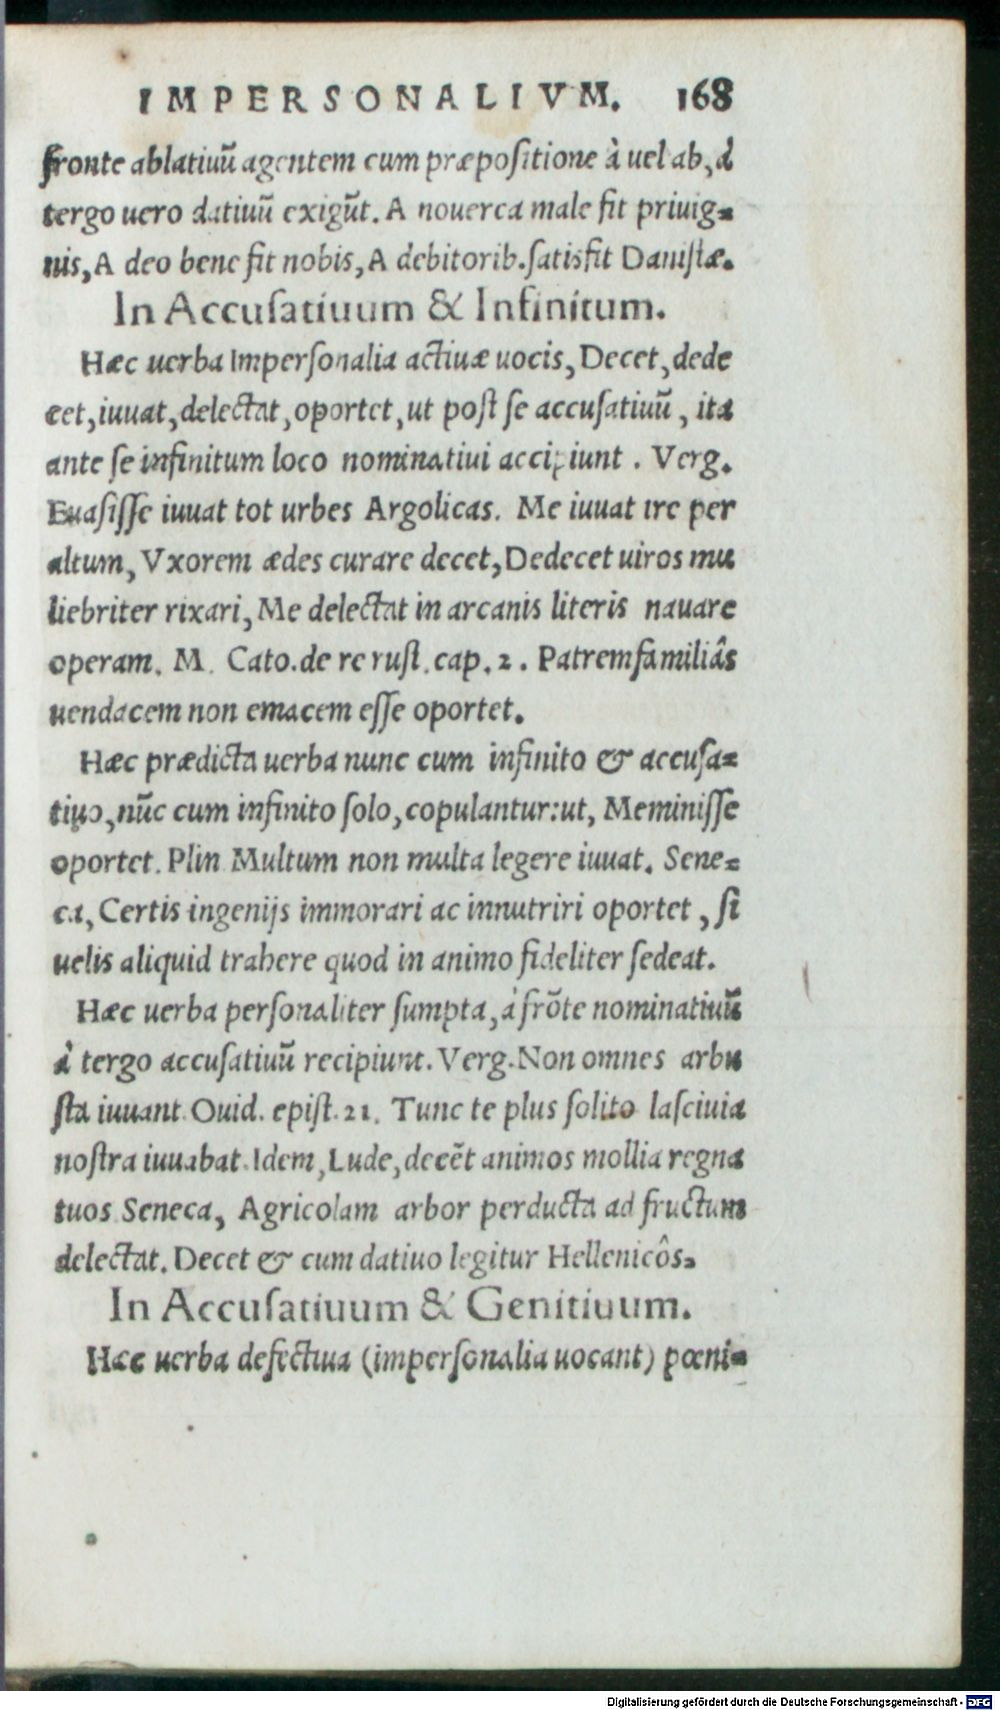 IMPERSONALIVM. 168
fronte ablatiuũ agentem cum præpositione à uel ab, à
tergo uero datiuũ exigũt. A nouerca male fit priuig-
nis, A deo bene fit nobis, A debitorib. satisfit Danistæ.
In Accusatiuum & Infinitum.
Hæc uerba Impersonalia actiuæ uocis, Decet, dede
cet, iuuat, delectat, oportet, ut post se accusatiuũ, ita
ante se infinitum loco nominatiui accipiunt. Verg.
Euasisse iuuat tot urbes Argolicas. Me iuuat ire per
altum, Vxorem ædes curare decet, Dedecet uiros mu
liebriter rixari, Me delectat in arcanis literis nauare
operam. M. Cato. de re rust. cap. 2. Patremfamiliâs
uendacem non emacem esse oportet.
Hæc prædicta uerba nunc cum infinito & accusa-
tiuo, nũc cum infinito solo, copulantur: ut, Meminisse
oportet. Plin Multum non multa legere iuuat. Sene-
ca, Certis ingenijs immorari ac innutriri oportet, si
uelis aliquid trahere quod in animo fideliter sedeat.
Hæc uerba personaliter sumpta, à frõte nominatiuũ
à tergo accusatiuũ recipiunt. Verg. Non omnes arbu
sta iuuant. Ouid. epist. 21. Tunc te plus solito lasciuia
nostra iuuabat. Idem, Lude, decẽt animos mollia regna
tuos Seneca, Agricolam arbor perducta ad fructum
delectat. Decet & cum datiuo legitur Hellenicôs.
In Accusatiuum & Genitiuum.
Hæc uerba defectiua (impersonalia uocant) pœni-
Digitalisierung gefördert durch die Deutsche Forschungsgemeinschaft - DFG